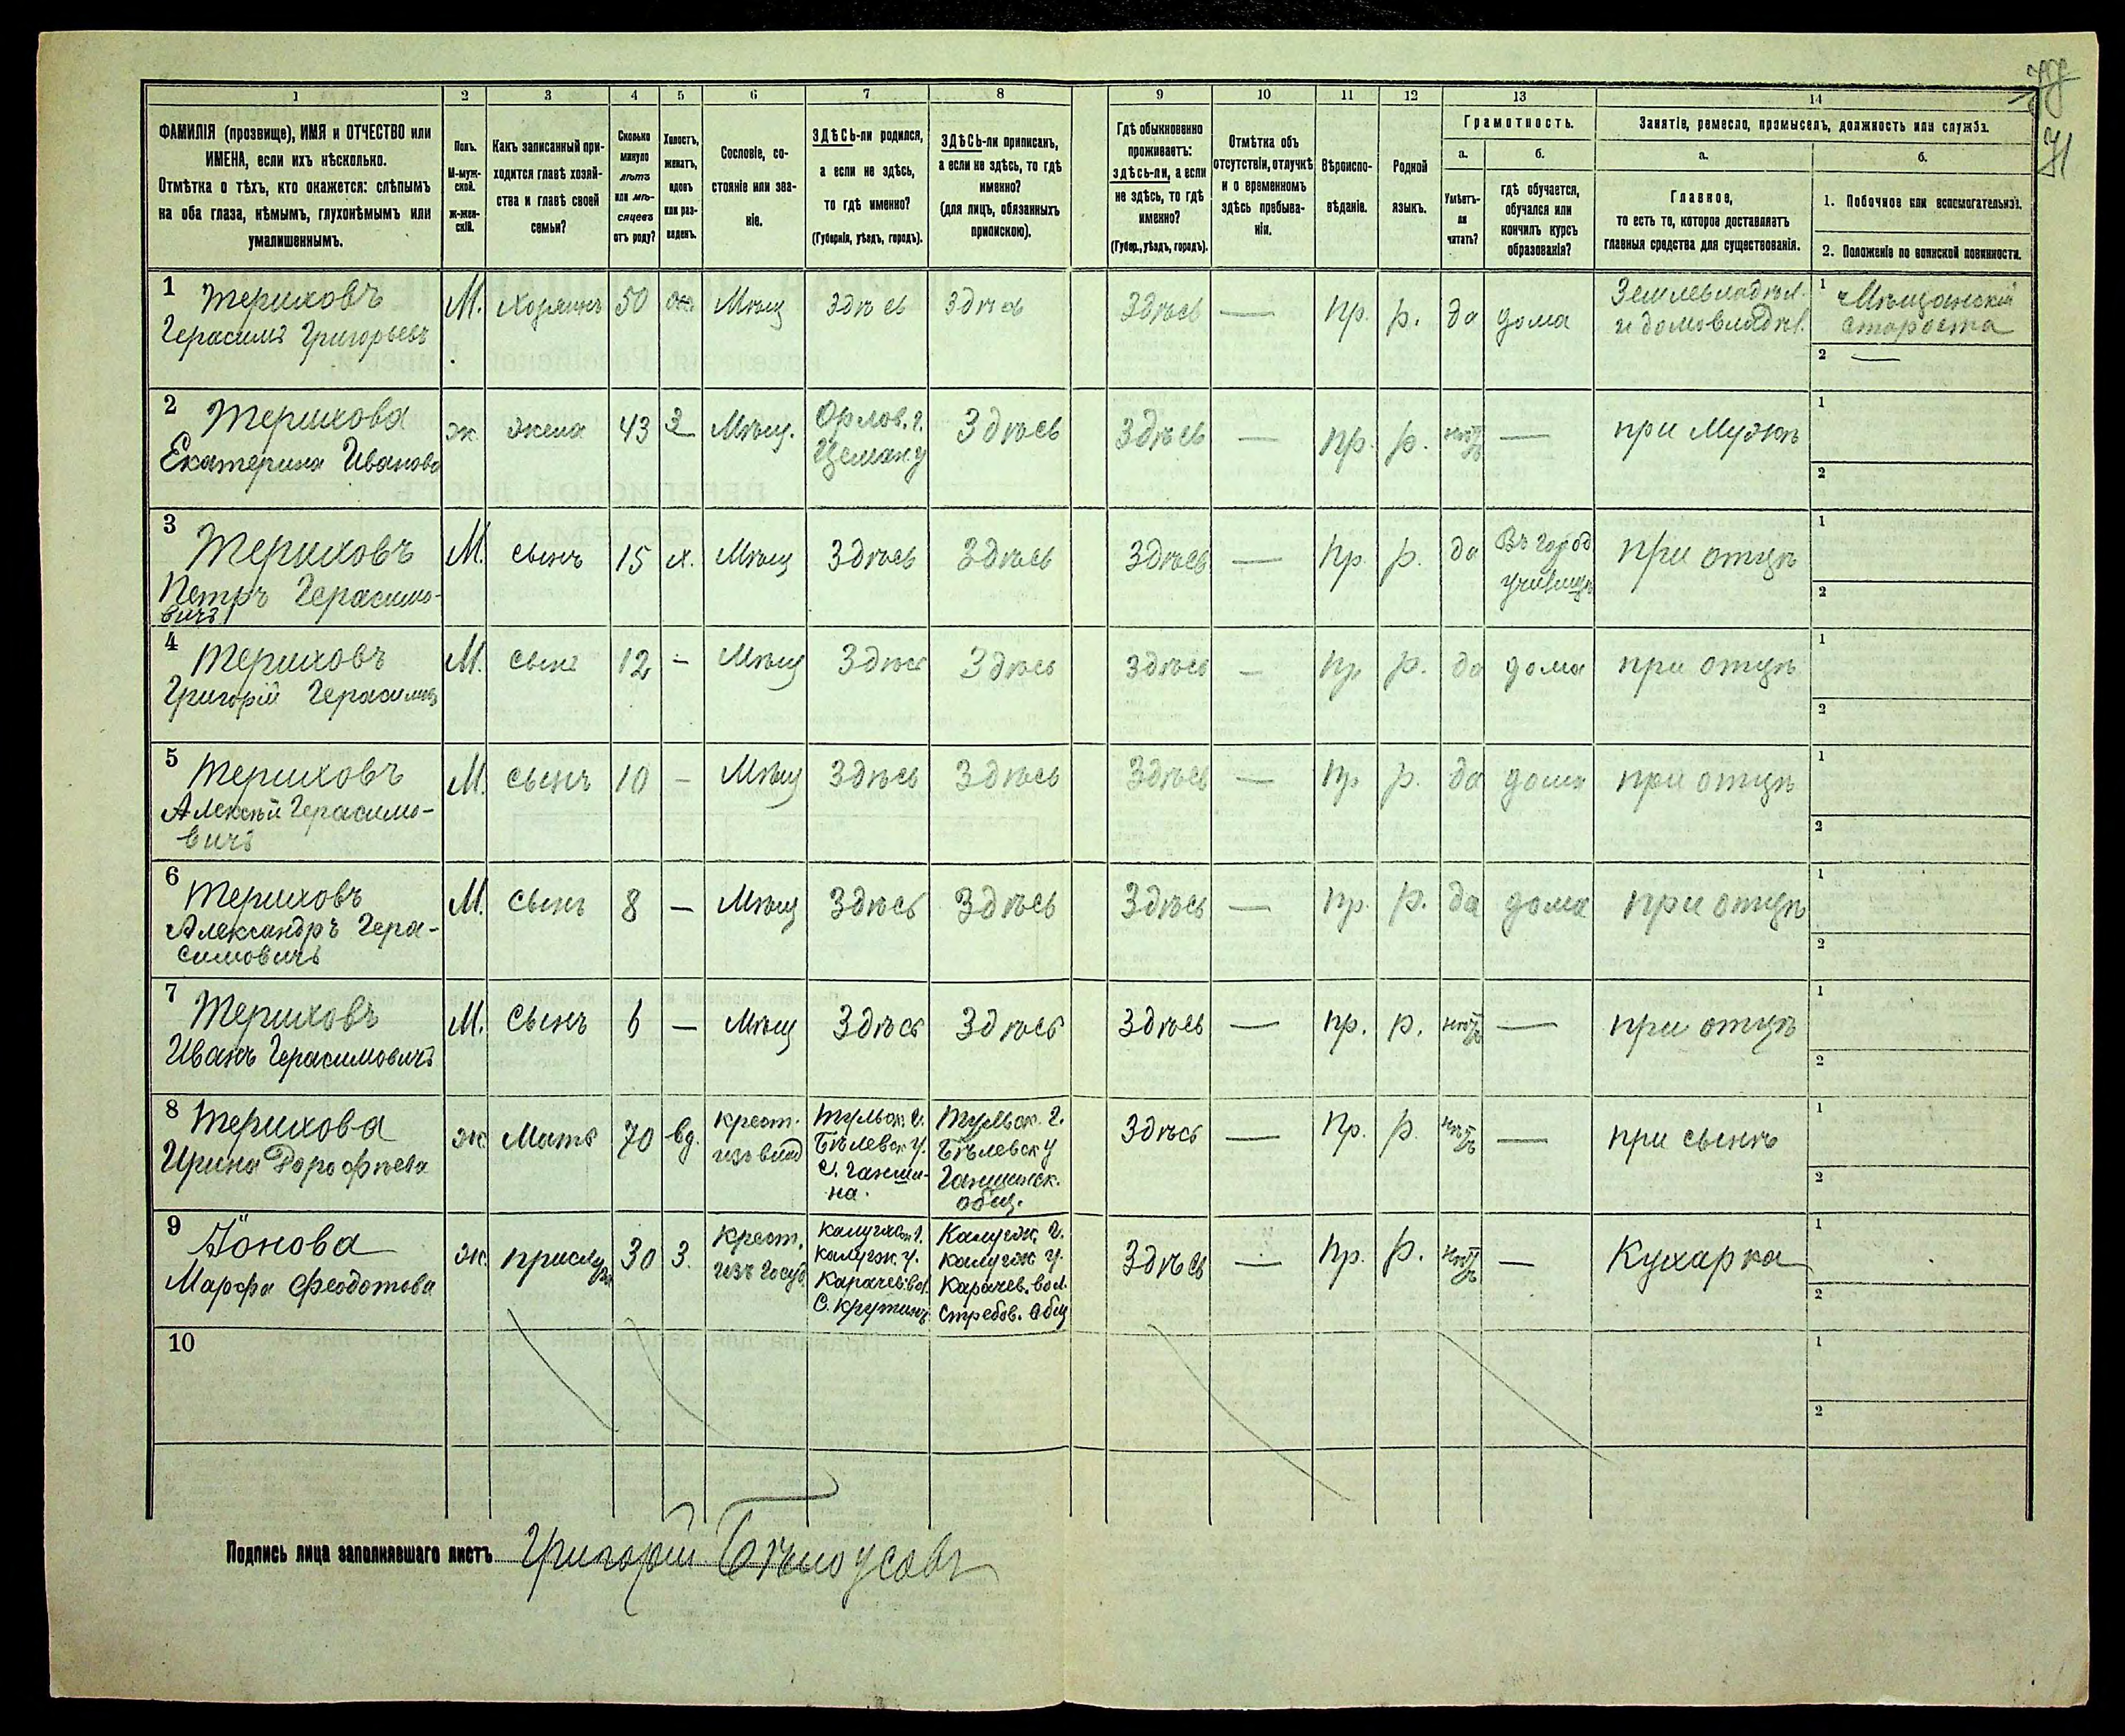 71
1 2 3 4 5 6 7 8 9 10 11 12 13 14
ФАМИЛІЯ (прозвище), ИМЯ и ОТЧЕСТВО или
ИМЕНА, если ихъ нѣсколько.
Отмѣтка о тѣхъ, кто окажется: слѣпымъ
на оба глаза, нѣмымъ, глухонѣмымъ или
умалишеннымъ.
Полъ.
М-муж-
ской.
ж-жен-
скій.
Какъ записанный при-
ходится главѣ хозяй-
ства и главѣ своей
семьи?
Сколько
минуло
лѣтъ
или мѣ-
сяцевъ
отъ роду?
Холостъ,
женатъ,
вдовъ
или раз-
веденъ.
Сословіе, со-
стояніе или зва-
ніе.
ЗДѢСЬ-ли родился,
а если не здѣсь,
то гдѣ именно?
(Губернія, уѣздъ, городъ).
ЗДѢСЬ-ли приписанъ,
а если не здѣсь, то гдѣ
именно?
(для лицъ, обязанныхъ
припискою).
Гдѣ обыкновенно
проживаетъ:
здѣсь-ли, а если
не здѣсь, то гдѣ
именно?
(Губер., уѣздъ, городъ).
Отмѣтка объ
отсутствіи, отлучкѣ
и о временномъ
здѣсь пребыва-
ніи.
Вѣроиспо-
вѣданіе.
Родной
языкъ.
Грамотность.
а.
Умѣетъ-
ли
читать?
б.
гдѣ обучается,
обучался или
кончилъ курсъ
образованія?
Занятіе, ремесло, промыселъ, должность или служба.
а.
Главное,
то есть то, которое доставляетъ
главныя средства для существованія.
б.
1. Побочное или вспомогательное.
2. Положеніе по воинской повинности.
1 Териховъ М. Хозяинъ 50 Мѣщ Здѣсь Здѣсь Здѣсь — пр. р. да дома Землевладѣл. 1 Мѣщанскій
Герасимъ Григорьевъ и домовладѣл. староста
2 —
2 Терихова ж. жена 43 З Мѣщ. Орлов. г. Здѣсь Здѣсь — пр. р. нѣтъ — при Мужѣ 1
Екатерина Иванова 2
3 Териховъ М. сынъ 15 х. Мѣщ Здѣсь Здѣсь Здѣсь — пр. р. да Въ город при отцѣ 1
Петръ Герасимо- училищѣ
вичъ 2
4 Териховъ М. сынъ 12 — Мѣщ Здѣсь Здѣсь Здѣсь — пр р. да дома при отцѣ 1
Григорій Герасимов 2
5 Териховъ М. сынъ 10 — Мѣщ Здѣсь Здѣсь Здѣсь — пр р. да дома при отцѣ 1
Алексѣй Герасимо-
вичъ 2
6 Териховъ М. сынъ 8 — Мѣщ Здѣсь Здѣсь Здѣсь — пр. р. да дома при отцѣ 1
Александръ Гера-
симовичъ 2
7 Териховъ М. Сынъ 6 — Мѣщ Здѣсь Здѣсь Здѣсь — пр. р. нѣтъ — при отцѣ 1
Иванъ Герасимовичъ 2
8 Терихова ж. Мать 70 вд. крест. Тульск. г. Тульск. г. Здѣсь — пр. р. нѣтъ — при сынѣ 1
Ирина Дорофѣева изъ влад Бѣлевск у. Бѣлевск у
с. Ганши- Ганшинск. 2
на. общ.
9 Іонова ж. прислуга 30 З. Крест. Калужск г. Калужск. г. Здѣсь — пр. р. нѣтъ — Кухарка 1
Марфа Феодотова изъ Госуд. калужск. у. калужск у.
Карачев. вол. Карачев. вол. 2
с. Крутицы Стребов. общ
10 1
2
Подпись лица заполнявшаго листъ Григорій Бѣлоусовъ